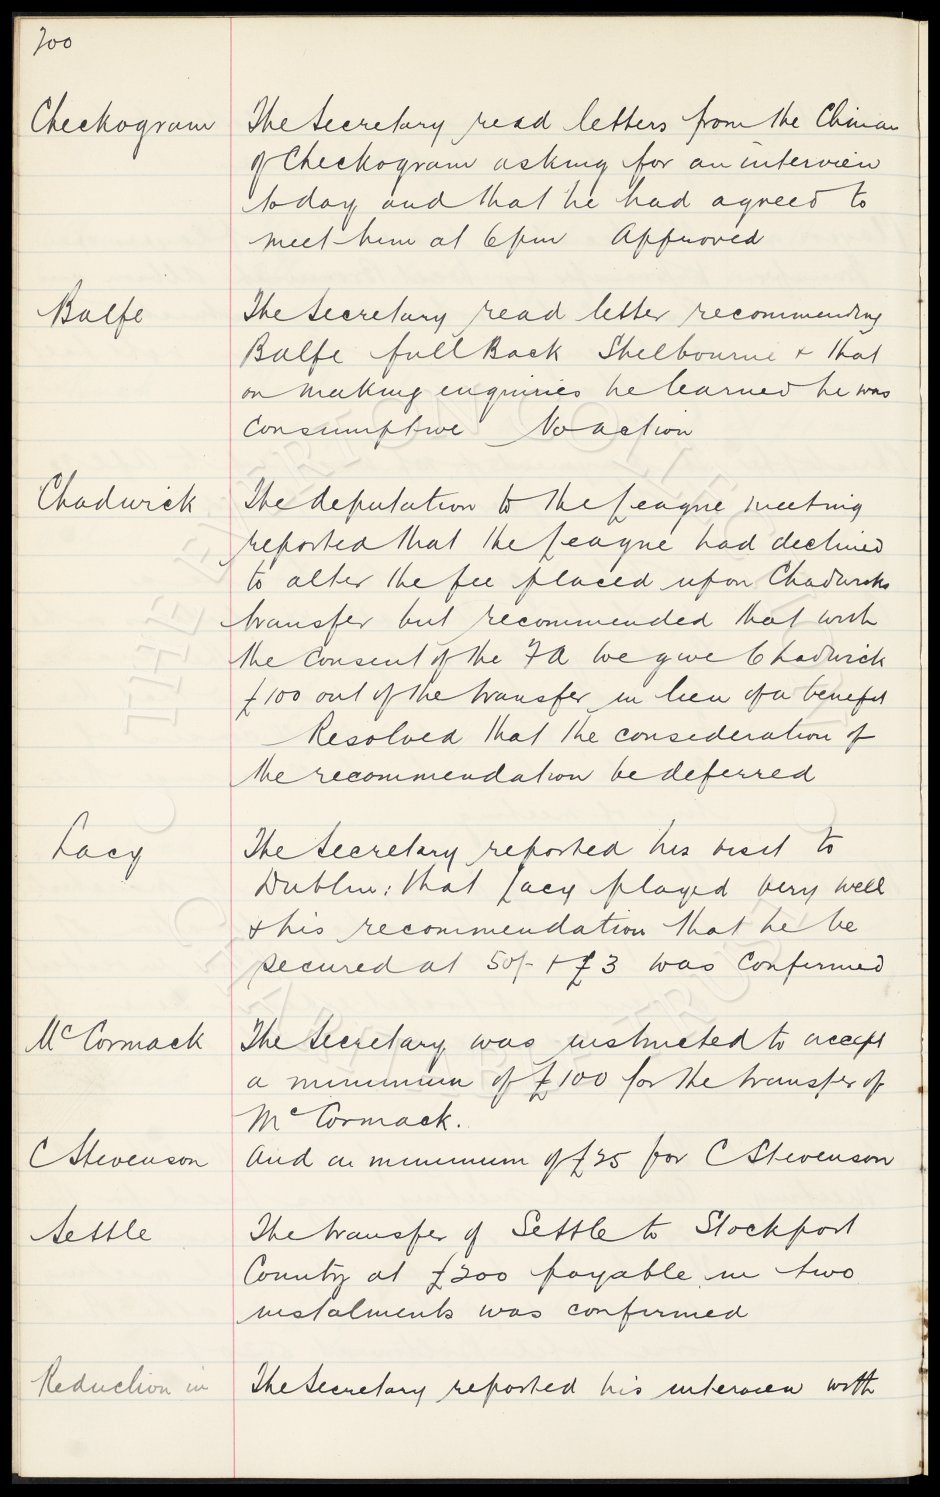 200
Checkogram The Secretary read letters from the Chman
of Checkogram asking for an interview
today and that he had agreed to
meet him at 6pm Approved
Balfe The Secretary read letter recommending
Balfe full Back Shelbourne & that
on making enquiries he learned he was
Consumptive No action
Chadwick The deputation to the League meeting
reported that the League had declined
to alter the fee placed upon Chadwicks
transfer but recommended that with
the consent of the FA we give Chadwick
£100 out of the transfer in lieu of a benefit
Resolved that the consideration of
the recommendation be deferred
Lacy The Secretary reported his visit to
Dublin: that Lacy played very well
& his recommendation that he be
secured at 50/- + £3 was Confirmed
McCormack The Secretary was instructed to accept
a minimum of £100 for the transfer of
McCormack.
C Stevenson And a minimum of £25 for C Stevenson
Settle The transfer of Settle to Stockport
County at £200 payable in two
instalments was confirmed
Reduction in The Secretary reported his interview with
THE EVERTON COLLECTION
CHARITABLE TRUST